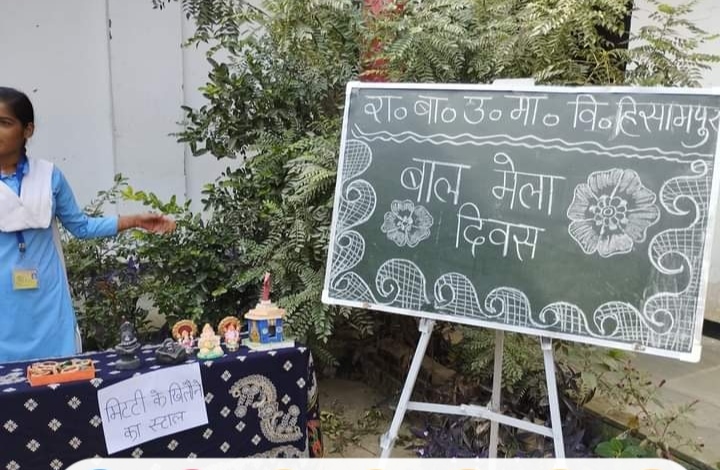 रा० बा० उ० मा० वि० हिसामपुर
बाल मेला
दिवस
मिटटी के खिलौने
का स्टाल